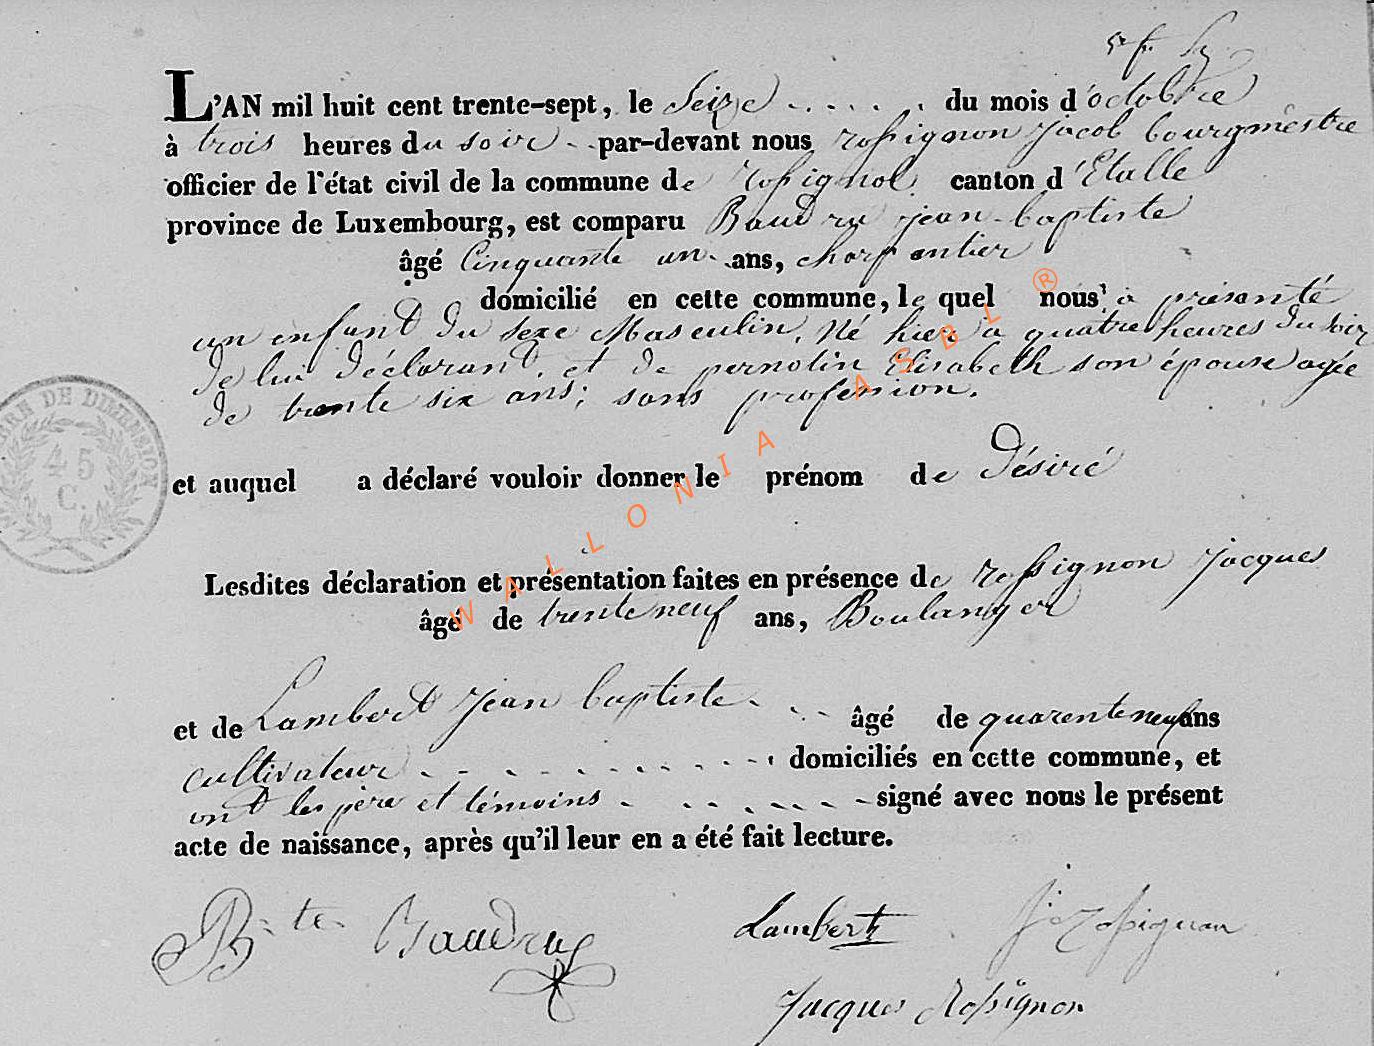 L'AN mil huit cent trente-sept, le Seize du mois d'octobre
à trois heures du soir par-devant nous rossignon jacob bourgmestre
officier de l'état civil de la commune de rossignol canton d'Etalle
province de Luxembourg, est comparu Baudru jean baptiste
âgé Cinquante un ans, charpentier
domicilié en cette commune, le quel nous à présenté
un enfant du sexe Masculin, Né hier à quatre heures du soir
de lui déclarant, et de pernotin Elisabeth son épouse agée
de trente six ans; sans profession.
et auquel a déclaré vouloir donner le prénom de Désiré
Lesdites déclaration et présentation faites en présence de rossignon Jacques
âgé de trente neuf ans, Boulanger
et de Lambert jean baptiste âgé de quarente neuf ans
cultivateur domiciliés en cette commune, et
ont les père et témoins signé avec nous le présent
acte de naissance, après qu'il leur en a été fait lecture.
Bte Baudru Lambert J. Rossignon
Jacques Rossignon
TIMBRE DE DIMENSION
45
C.
WALLONIA ASBL ®